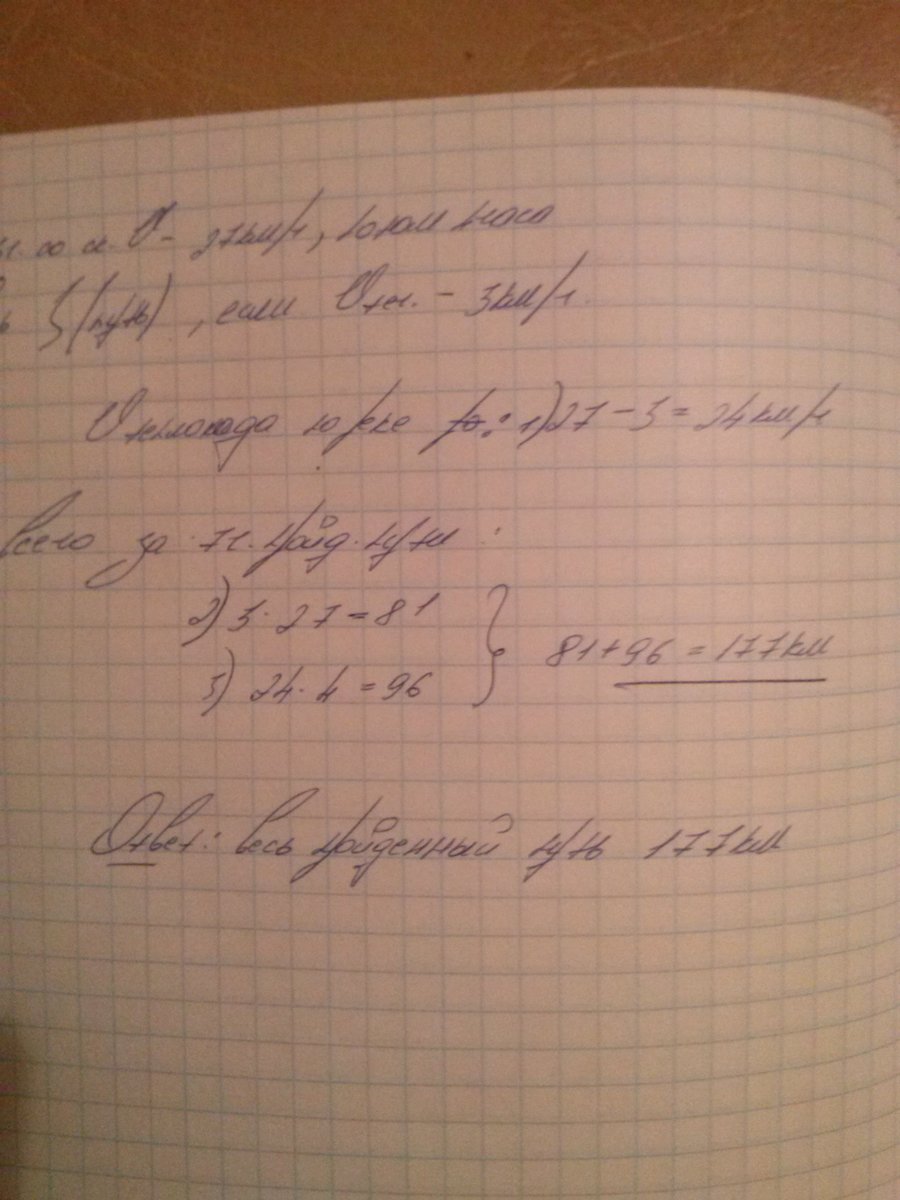 со ск. V - 27км/ч, потом 4 часа
S (путь), если Vтеч. - 3км/ч.
Vтеплохода по реке : 1) 27 - 3 = 24км/ч
Всего за 7ч. пройд. пути :
2) 3 · 27 = 81
3) 24 · 4 = 96
81+96 = 177км
Ответ: весь пройденный путь 177км